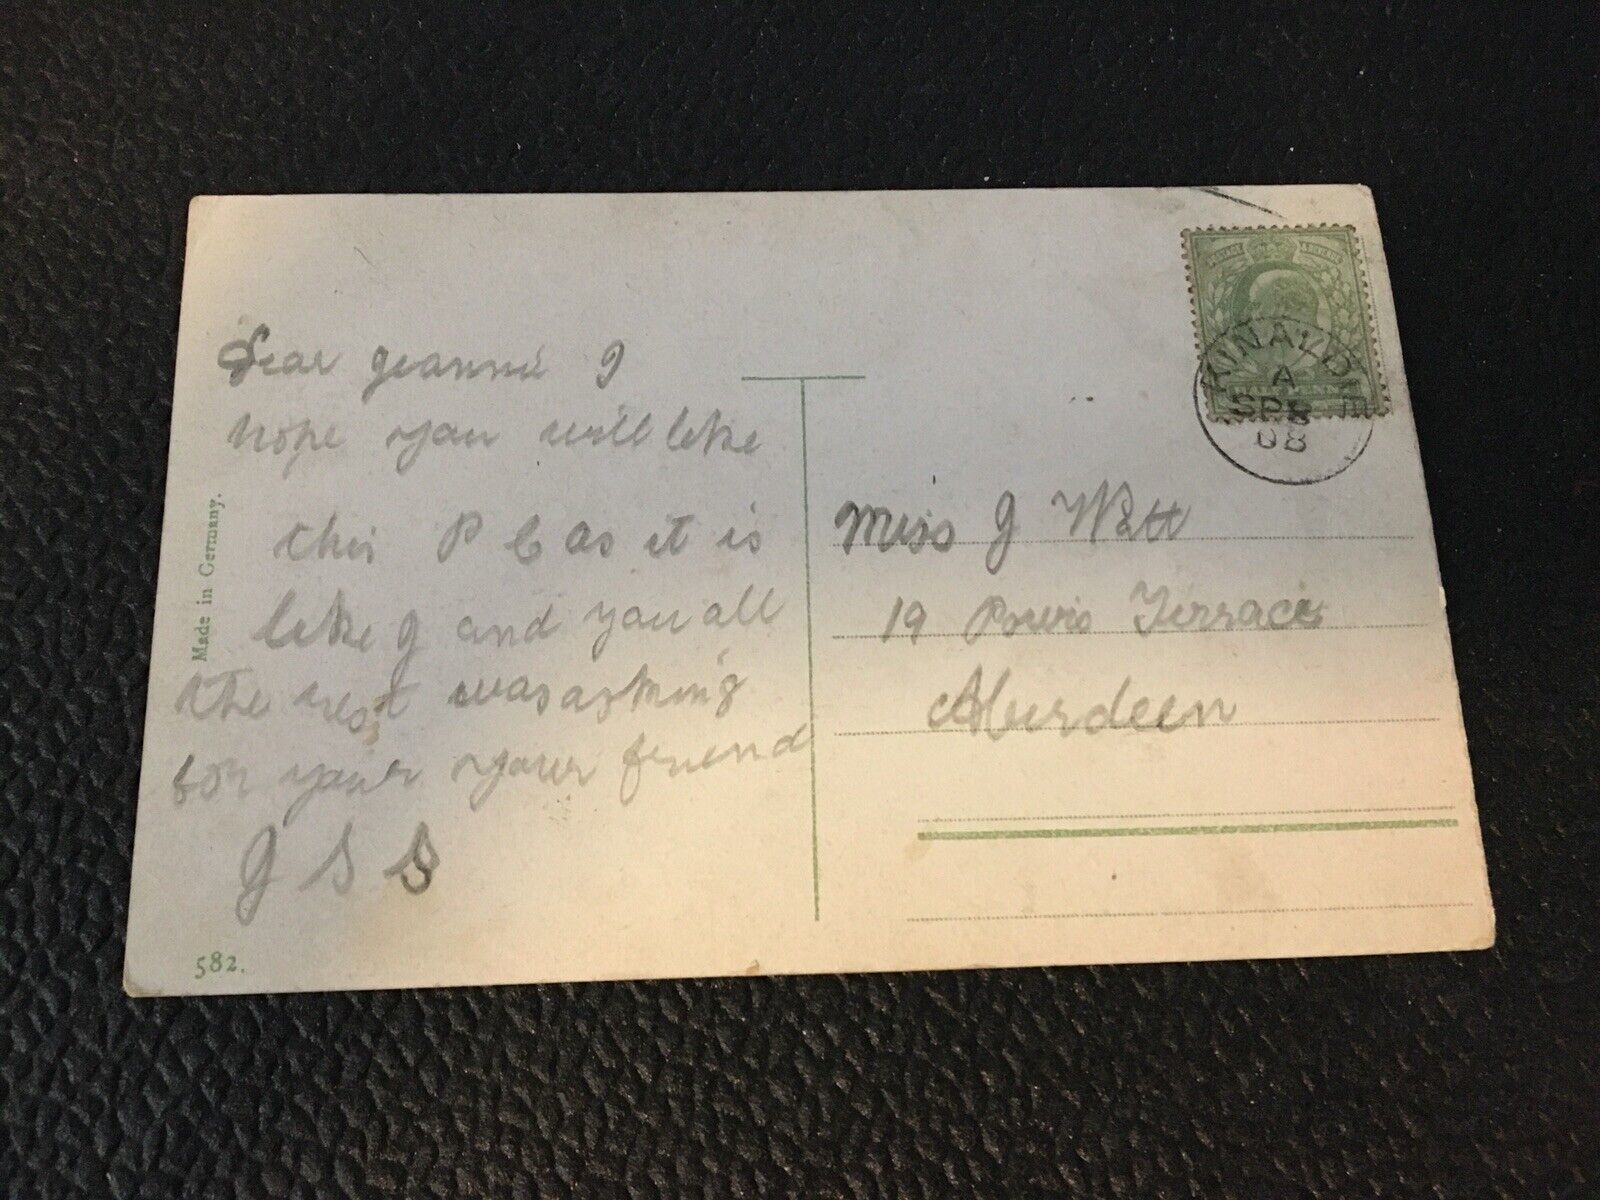 Dear Jeannie I
hope you will like
this P C as it is
like J and you all
the rest was asking
for your your friend
J S S
Made in Germany.
582.
A
SP 8
08
Miss J Watt
19 Powis Terrace
Aberdeen